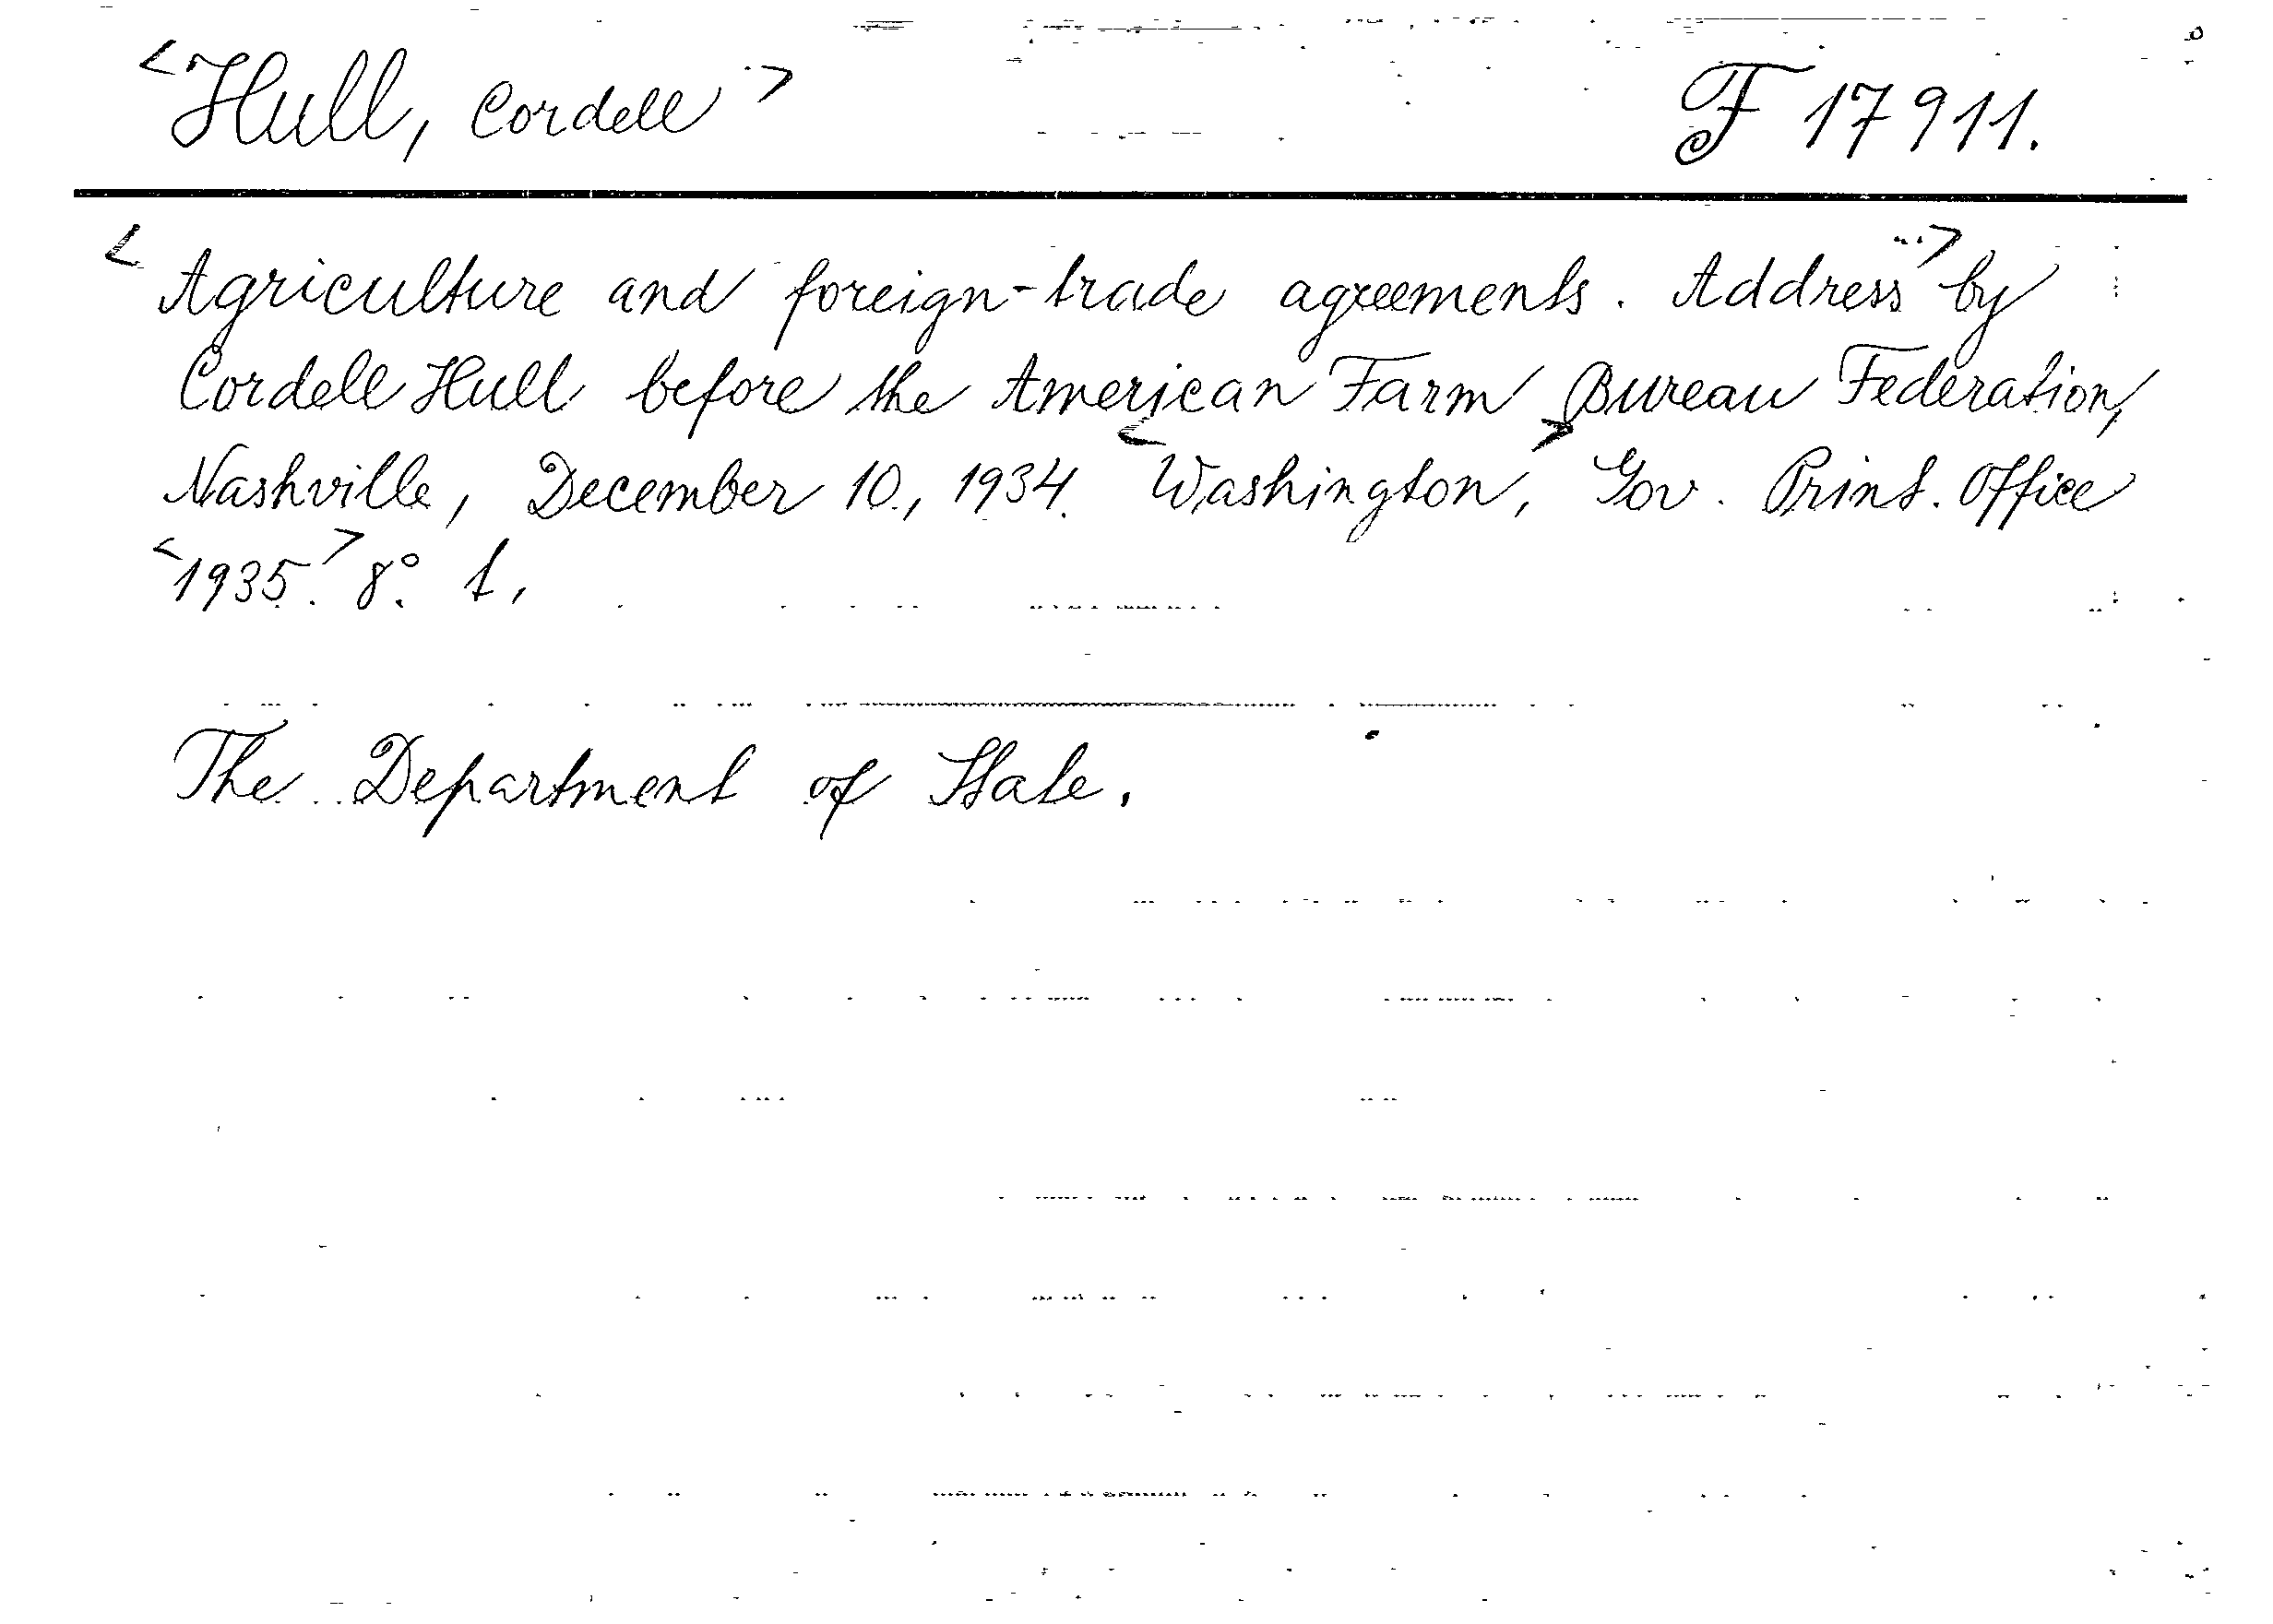 <Hull, Cordell> F 17911.
<Agriculture and foreign-trade agreements. Address> by
Cordell Hull before the American Farm Bureau Federation,
Nashville, December 10., 1934. <Washington,> Gov. Print. Office
<1935.> 8°. t,
The Department of State.